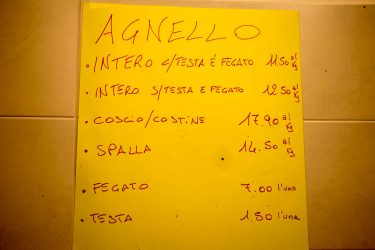 AGNELLO
• INTERO c/TESTA E FEGATO 11.50 al Kg
• INTERO s/TESTA E FEGATO 12.50 al Kg
• COSCIO/COSTINE 17.90 al Kg
• SPALLA 14.50 al Kg
• FEGATO 7.00 l'uno
• TESTA 1.50 l'una